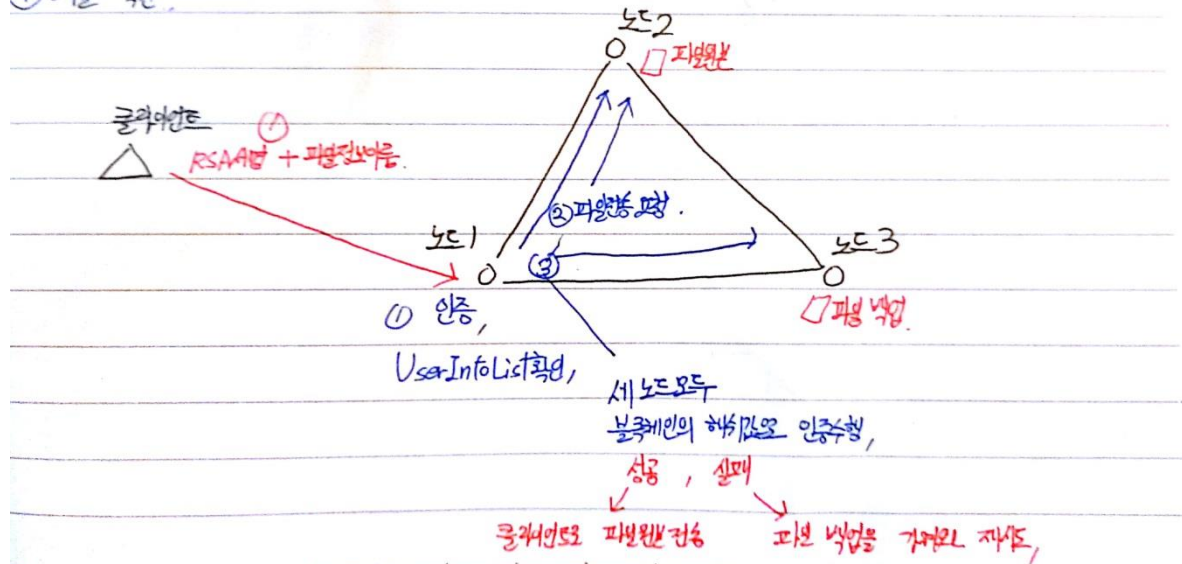 노드2
파일원본
클라이언트
①
RSA서명 + 파일정보이름.
②파일전송 요청.
노드1
③
노드3
① 인증,
파일 백업.
UserInfoList확인,
세 노드 모두
블록체인의 해쉬값으로 인증수행,
성공 , 실패
클라이언트로 파일원본 전송
파일 백업을 가져와 재시도,